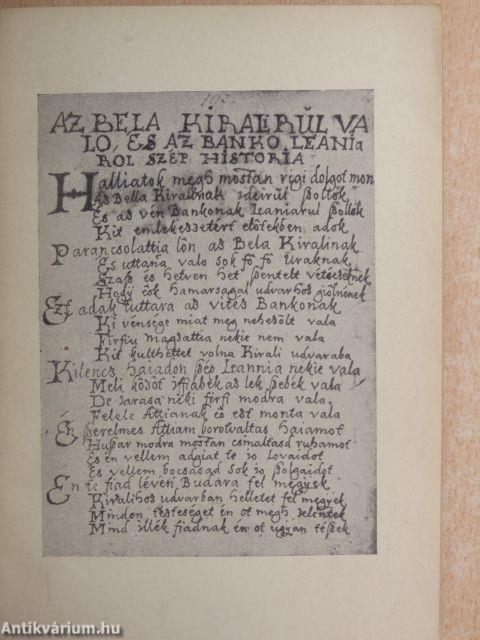 192.
AZ BELA KIRALIRÜL VA
LO, ES AZ BANKO LEANIA
ROL SZEP HISTORIA
Halliatok megh mostan regi dolgot mon
Az Bella Kiralinak ideirül szollok
Es az ven Bankonak Leaniarul szollok
Kit emlekezetért előtökben adok
Parancsolattia lön az Bela Kiralinak
Es uttanna valo sok fö fö Uraknak
Szasz es hetven het szentelt vétezetnek
Hogy eök hamarsagal udvarhos giölnének
Ezt adak tuttara az vités Bankonak
Ki vensége miat meg nehesölt vala
Firfiu magzattia nekie nem vala
Kit külthettet volna Kirali udvaraba
Kilencz haiadon szép Leannia nekie vala
Meli között iffiabek az lek szebék vala
De iarasa néki férfi modra vala
Felele Attianak eö ezt monta vala
Én szerelmes Attiam borotvaltas haiamot
Huszar modra mostan csinaltasd ruhamot
Es én vellem adgiat te io Lovaidot
Es vellem bocsasad sok io szolgaidot
En te fiad léven Budara fel megyek
Kiralihos udvarban helletet fel megyek
Mindon tisteséget én ot megh jelentek
Mind illék fiadnak én ot ugyan tészek
Antikvárium.hu